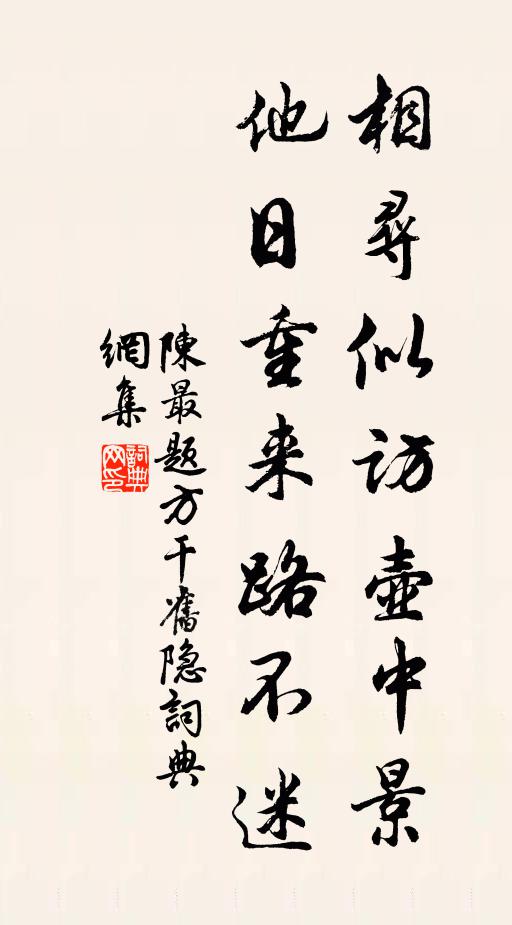 相尋似访壶中景
他日重来路不迷
陳最题方干舊隐詞典
網集
詞典
网印